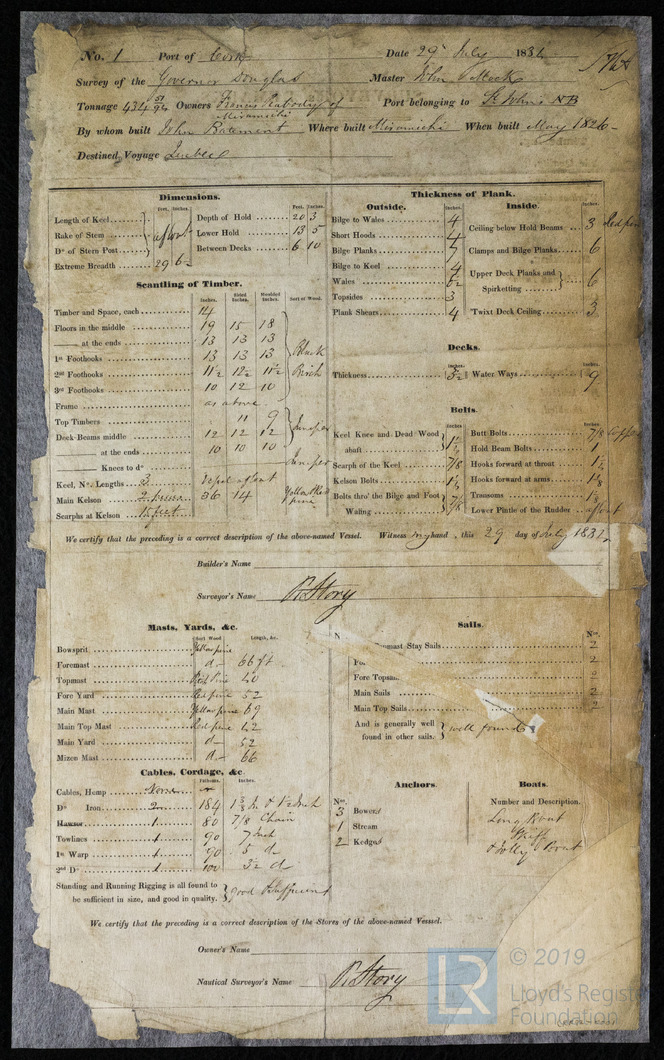 No. 1 Port of Cork Date 29 July 183
Survey of the Governor Douglas Master John
Tonnage 434 Owners Francis Peabody of Miramichi Port belonging to St Johns NB
By whom built John Where built Miramichi When built May 1826
Destined Voyage Quebec
Dimensions.
Feet. Inches.
Length of Keel
Rake of Stem afloat
Do of Stern Post
Extreme Breadth 29 6
Feet. Inches.
Depth of Hold 20 3
Lower Hold 13 5
Between Decks 6 10
Thickness of Plank.
Outside. Inches.
Bilge to Wales 4
Short Hoods 4
Bilge Planks
Bilge to Keel 4
Wales
Topsides 3
Plank Shears 4
Inside. Inches.
Ceiling below Hold Beams 3 Red pine
Clamps and Bilge Planks 6
Upper Deck Planks and Spirketting } 6
'Twixt Deck Ceiling 3
Scantling of Timber.
Inches. Sided Inches. Moulded Inches. Sort of Wood.
Timber and Space, each 14
Floors in the middle 19 15 18
—— at the ends 13 13 13
1st Foothooks 13 13 13 Black
2nd Foothooks 11½ 12½ 11½ Birch
3rd Foothooks 10 12 10
Frame as above
Top Timbers 11 9
Deck-Beams middle 12 12 12 Juniper
at the ends 10 10 10
—— Knees to do Juniper
Keel, No. Lengths 3 afloat
Main Kelson 2 36 14 Yellow & Red pine
Scarphs at Kelson 15 feet
Decks.
Inches.
Thickness
Water Ways 9
Bolts.
Inches.
Keel Knee and Dead Wood abaft
Scarph of the Keel 7/8
Kelson Bolts
Bolts thro' the Bilge and Foot Waling
Inches.
Butt-Bolts 7/8 Copper
Hold Beam Bolts 1
Hooks forward at throat
Hooks forward at arms
Transoms
Lower Pintle of the Rudder afloat
We certify that the preceding is a correct description of the above-named Vessel. Witness my hand, this 29 day of July 183
Builder's Name
Surveyor's Name R. Story
Masts, Yards, &c.
Sort Wood Length, &c.
Bowsprit Yellow pine
Foremast do 66 ft
Topmast 40
Fore Yard Red pine 52
Main Mast Yellow pine 69
Main Top Mast Red pine 42
Main Yard do 52
Mizen Mast do 66
Sails.
N No.
mast Stay Sails 2
Fo 2
Fore Topsa 2
Main Sails 2
Main Top Sails 2
And is generally well found in other sails. } well found
Cables, Cordage, &c.
Fathoms. Inches.
Cables, Hemp None
Do Iron 2 184
Hawser 1 80 7/8 Chain
Towlines 1 90 7 Inch
1st Warp 1 90 5 d
2nd Do 1 100 3½ d
Standing and Running Rigging is all found to be sufficient in size, and good in quality. } good & Sufficient
Anchors.
No.
3 Bowers
1 Stream
2 Kedges
Boats.
Number and Description.
Long Boat
Skiff
& Jolly Boat
We certify that the preceding is a correct description of the Stores of the above-named Vesssel.
Owner's Name
Nautical Surveyor's Name R. Story
LR
© 2019
Lloyd's Register
Foundation